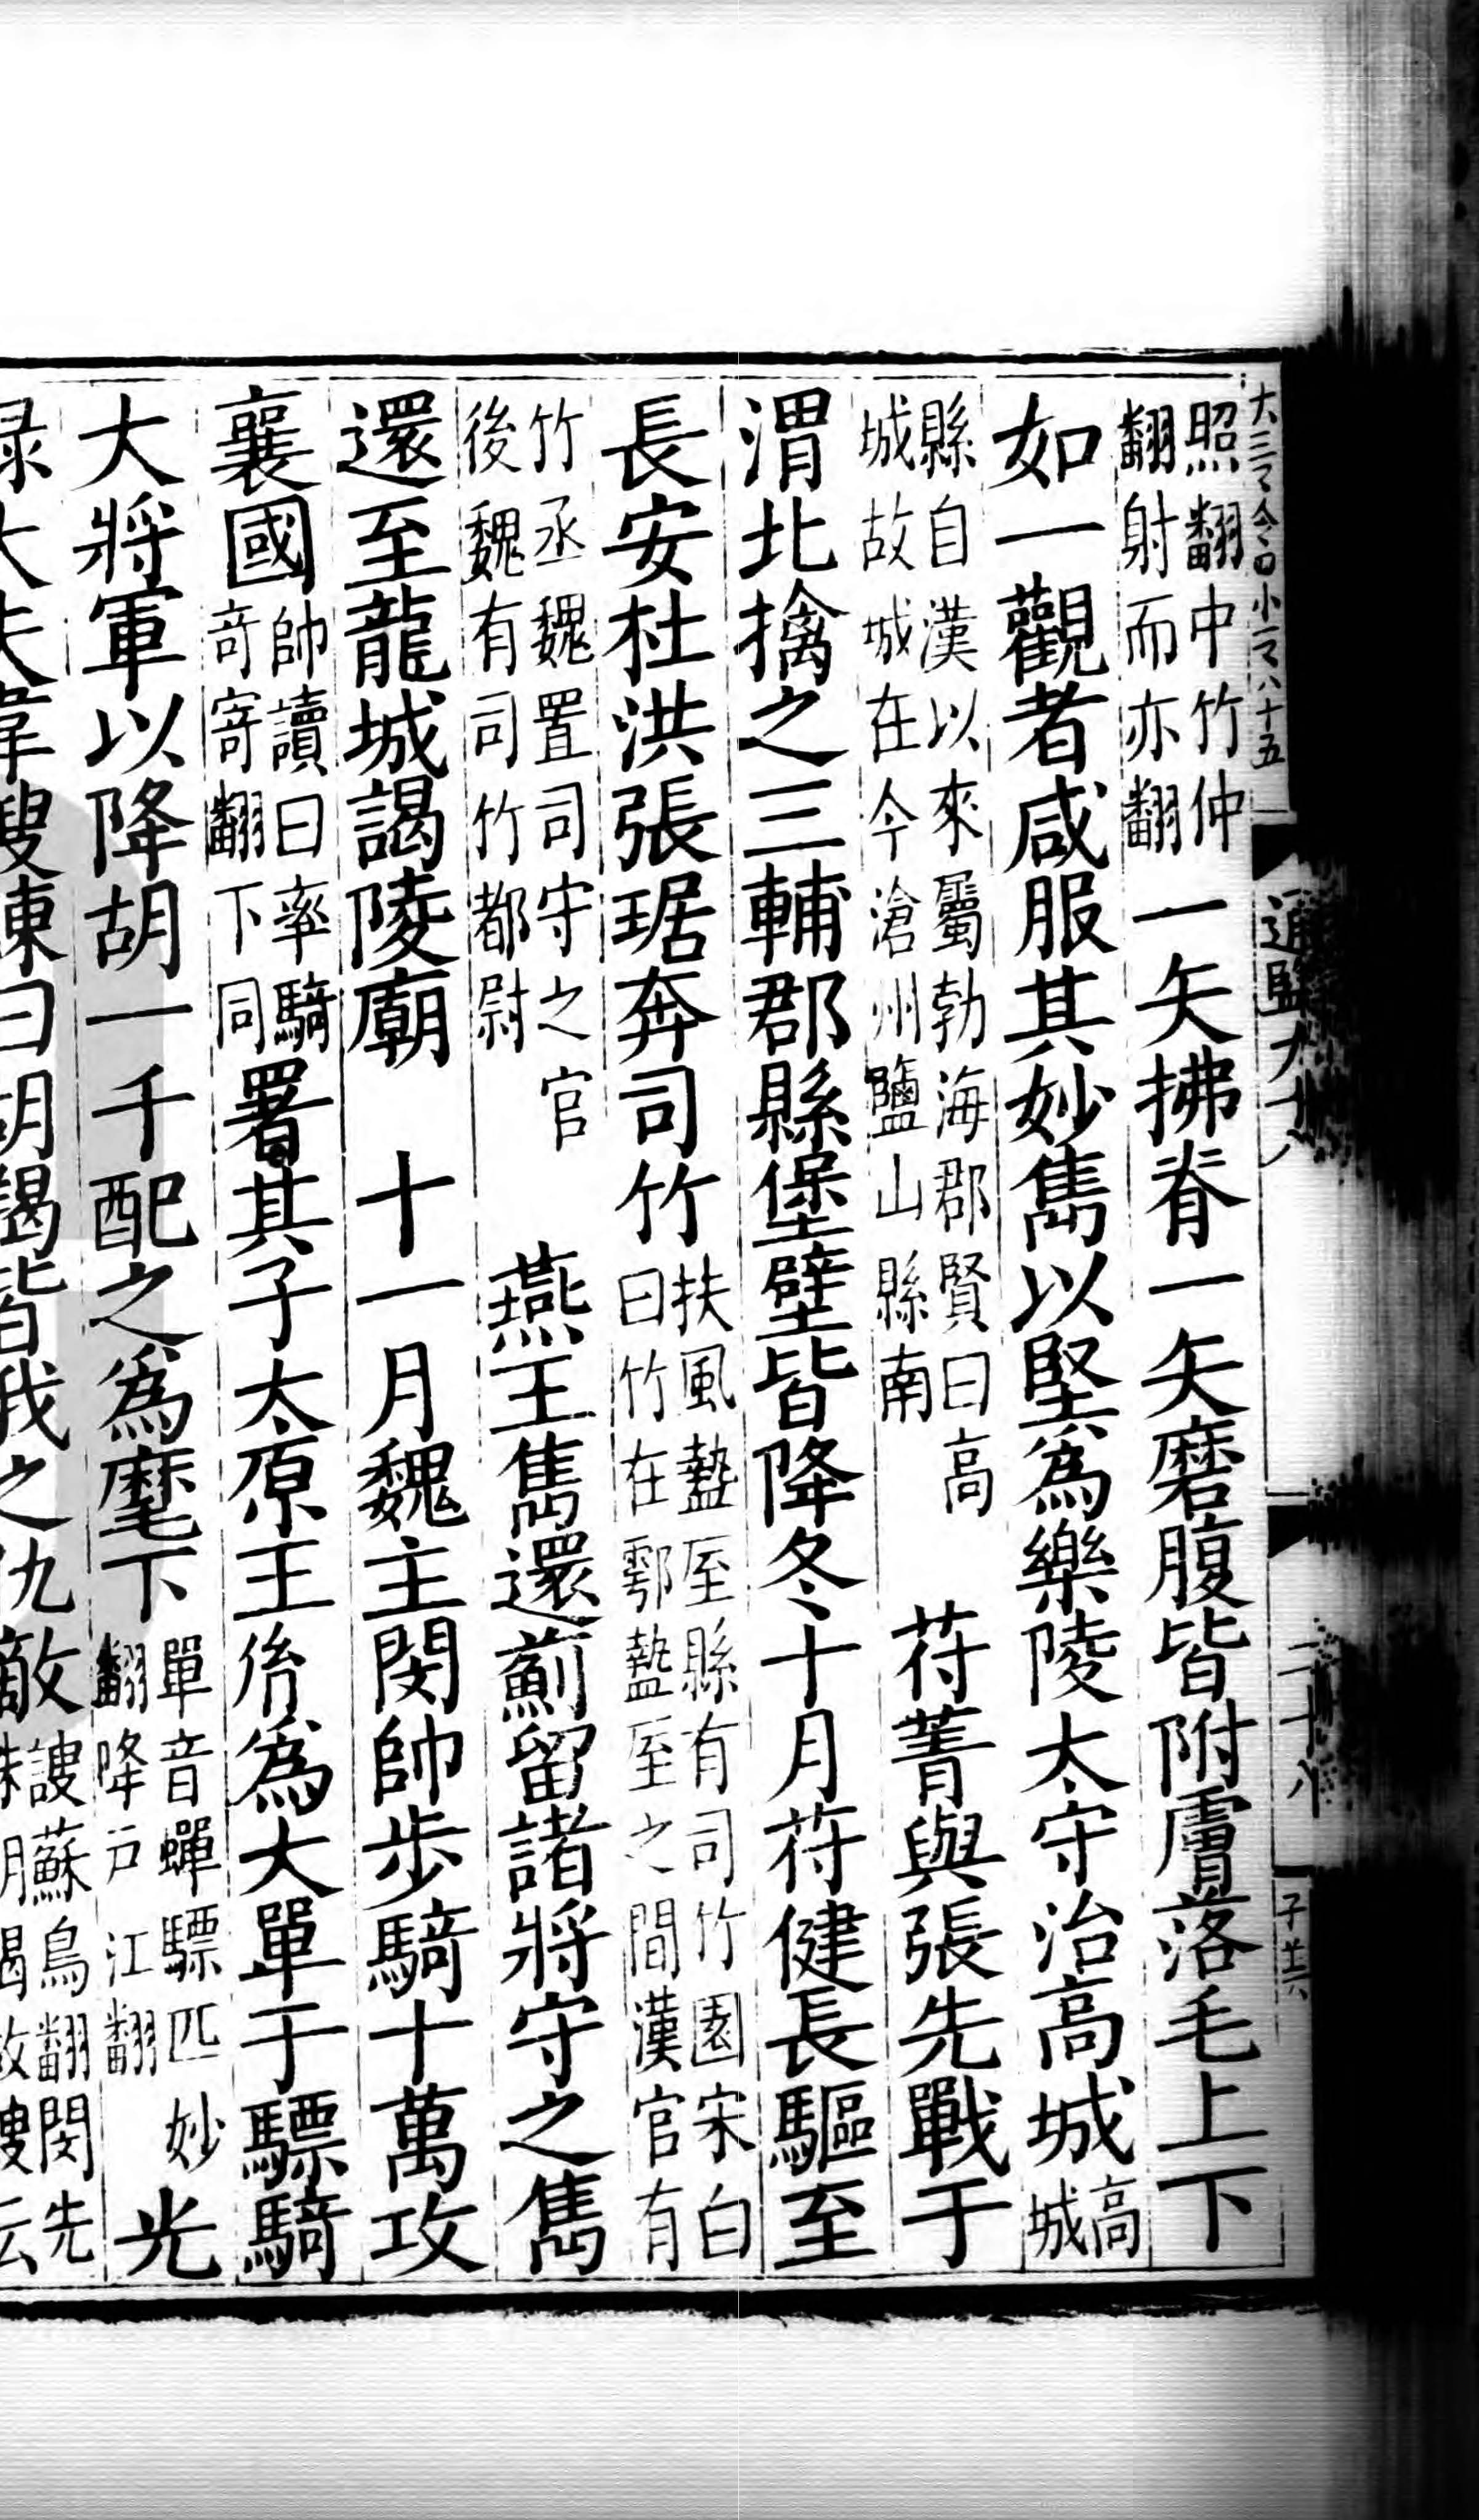 大三四小一八十五
通鑑九十八
二十八
照翻中竹仲翻射而亦翻一矢拂脊一矢磨腹皆附膚落毛上下
如一觀者咸服其妙雋以堅為樂陵太守治高城高城
縣自漢以來屬勃海郡賢曰高城故城在今滄州鹽山縣南苻菁與張先戰于
渭北擒之三輔郡縣堡壁皆降冬十月苻健長驅至
長安杜洪張琚奔司竹扶風盩厔縣有司竹園宋白曰竹在鄠盩厔之間漢官有
竹丞魏置司守之官後魏有司竹都尉燕王雋還薊留諸將守之雋
還至龍城謁陵廟十一月魏主閔帥步騎十萬攻
襄國帥讀曰率騎奇寄翻下同署其子太原王胤為大單于驃騎
大將軍以降胡一千配之為麾下單音蟬驃匹妙翻降戶江翻光
祿大夫韋謏諫曰胡羯皆我之仇敵謏蘇鳥翻閔先